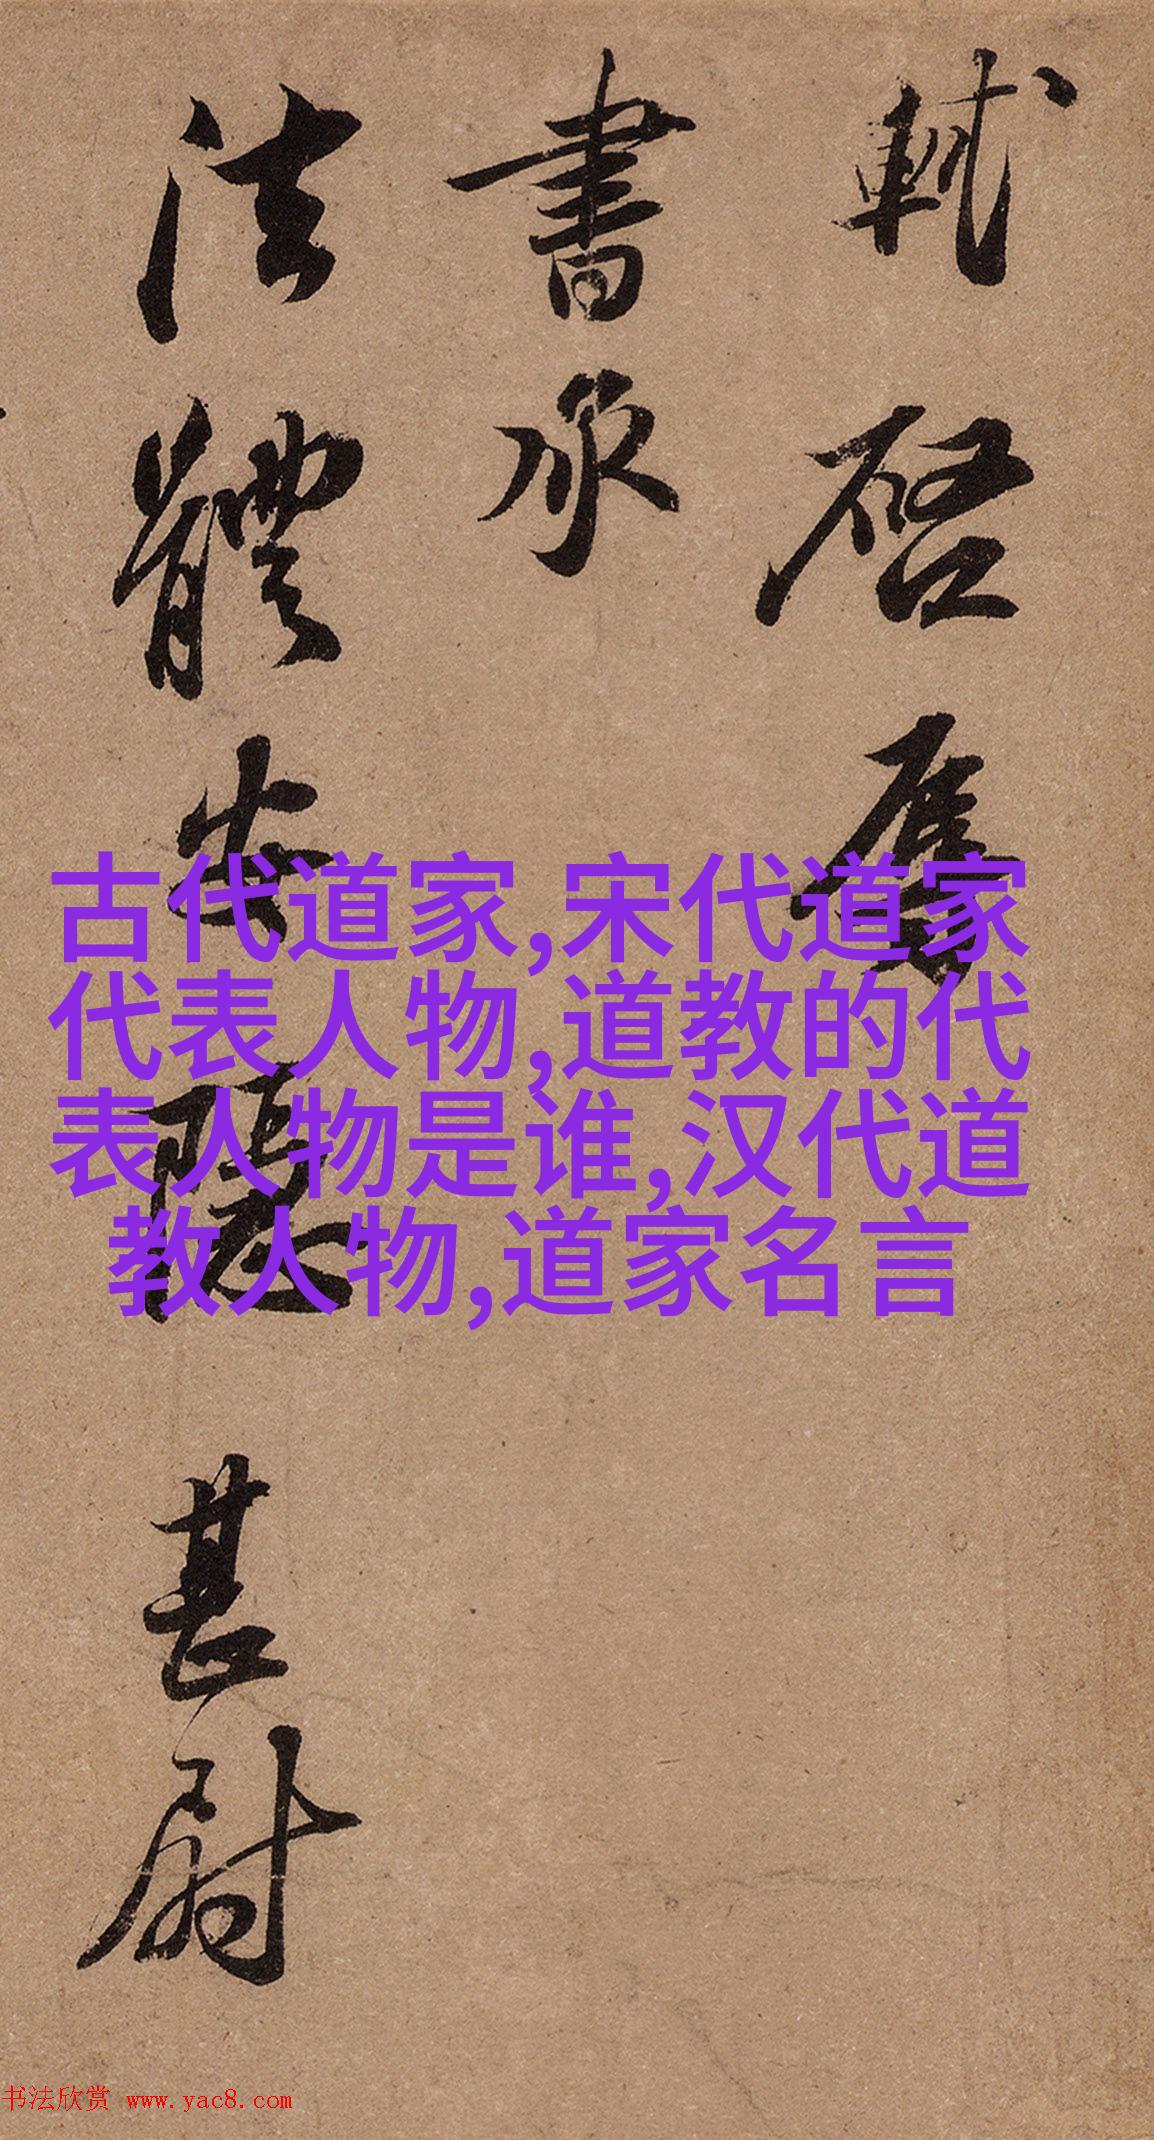 軾啓辱
書承
法體安隱甚尉
古代道家,宋代道家
代表人物,道教的代
表人物是谁,汉代道
教人物,道家名言
书法欣赏 www.yac8.com